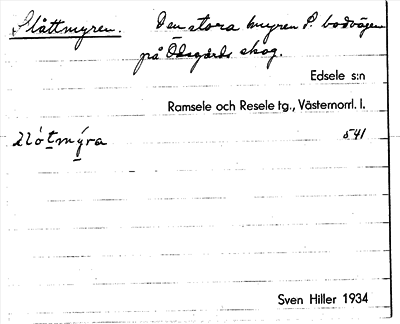 Slåttmyren. Den stora myren S. bodvägen
på Odsgårds skog.
Edsele s:n
Ramsele och Resele tg., Västernorrl. l.
541
Sven Hiller 1934